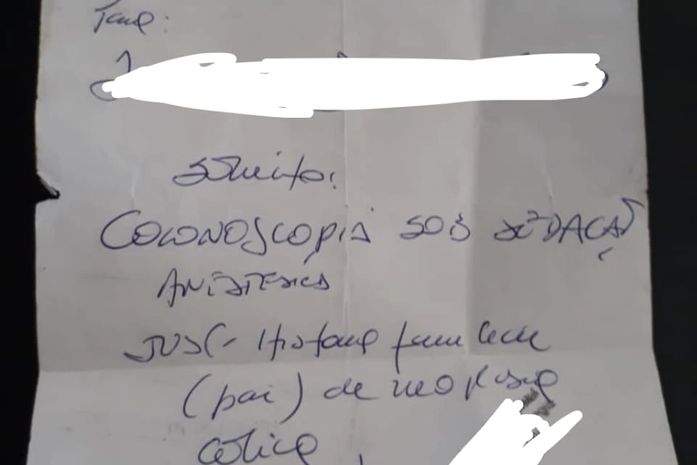 Para:
Solicito:
COLONOSCOPIA SOB SEDAÇÃO
ANESTESICA
JUST- Historia familiar
(pai) de neoplasia
colica